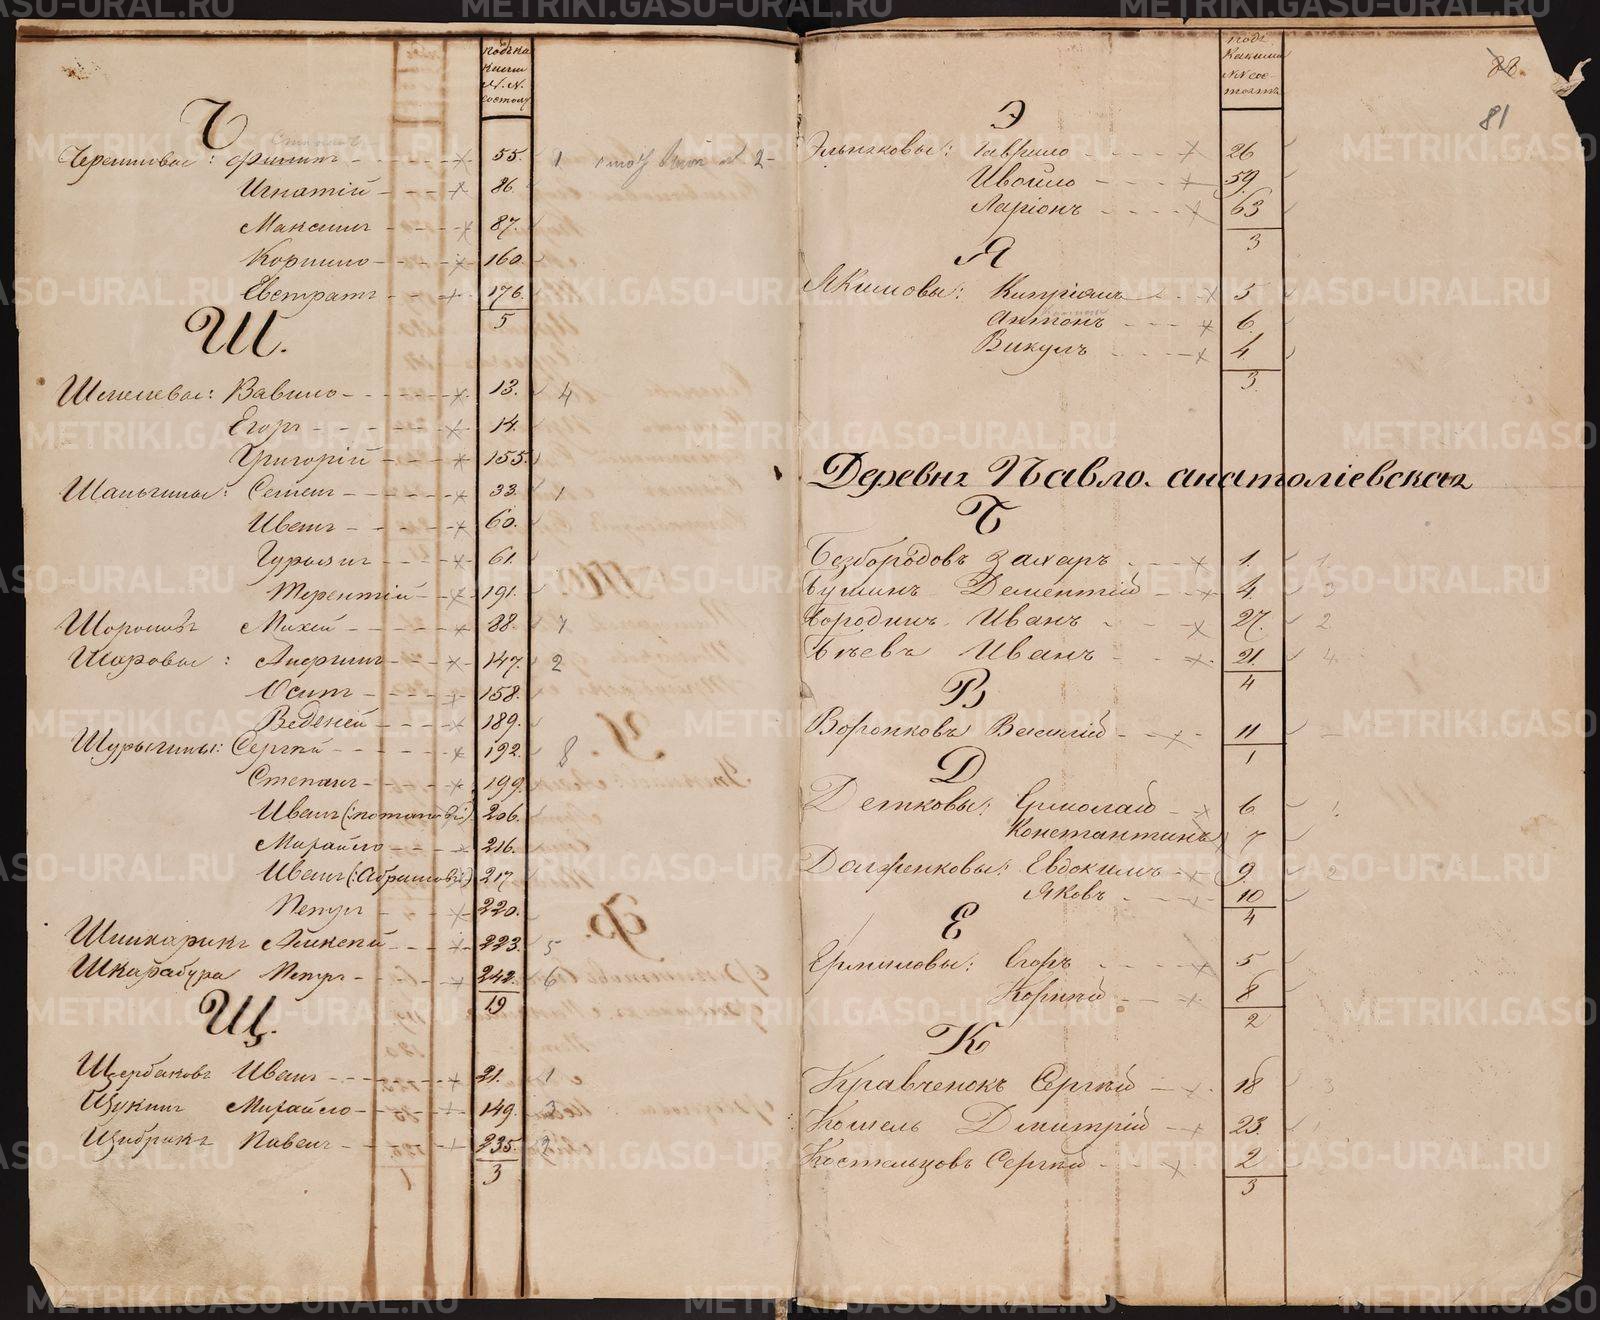 подъ ка
кими
№.№.
состоят
Ч
Черепановы: Филипъ 55. 1
Игнатій 86.
Максимъ 87.
Корнило 160.
Евстратъ 176.
5
Ш.
Шемелевы: Вавило 13. 4
Егоръ 14.
Григорій 155.
Шапыгины: Семенъ 33. 1
Иванъ 60.
Гурьянъ 61.
Терентій 191.
Михей 88. 7
Шаровые: 147. 2
Осипъ 158.
Веденей 189.
Шурыгины: Сергѣй 192. 8
Степанъ 199.
Иванъ (:потаповъ:) 206.
Михайло 216.
Иванъ (:Абрамовъ:) 217
Петръ 220.
Шишкарикъ Алексѣй 223. 5
Шкарабура Петръ 242. 6
19
Щ.
Щербаковъ Иванъ 21. 1
Щукинъ Михайло 149. 3
Щибрикъ Павелъ 235. 2
3
подъ
Какими
№№ сос-
тоятъ
88.
81
Э
Эльняковы: Гаврило 26
Ивойло 59.
Ларіонъ 63
3
Я
Якимовы: Кипріянъ 5
Антонъ 6.
Викулъ 4.
3.
Деревня Павло. анатоліевская
Б
Безбородовъ Захаръ 1. 1
Бушинъ Дементій 4. 3
Бородинъ Иванъ 27. 2
Бѣевъ Иванъ 21. 4
4
В
Воронковъ Василій 11
1
Д
Детковы: Ермолай 6. 1
Константинъ 7
Долженковы: Евдокимъ 9. 2
Яковъ 10
4
Е
Ермиловы: Егоръ 5
Корнѣй 8
2
К
Кравченокъ Сергѣй 18 3
Кошель Дмитрій 23. 1
Костельцовъ Сергѣй 2
3
METRIKI.GASO-URAL.RU